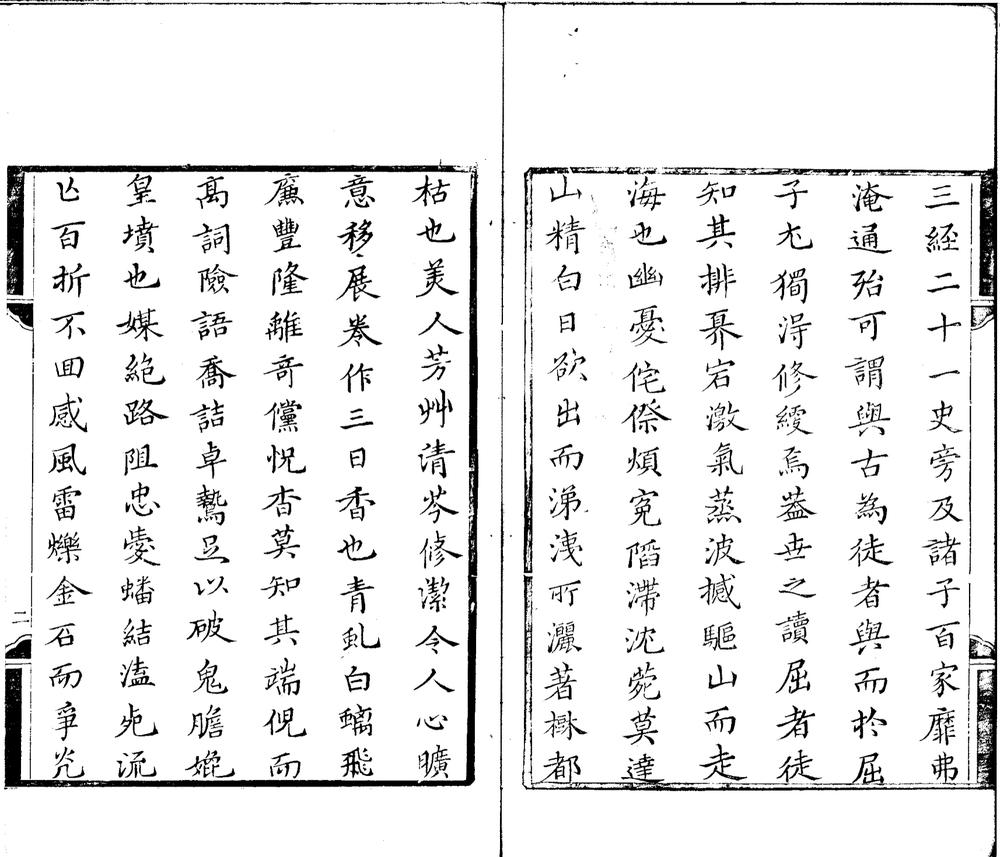 三經二十一史旁及諸子百家靡弗
淹通殆可謂與古為徒者與而於屈
子尤獨淂修綆焉葢世之讀屈者徒
知其排奡宕激氣蒸波撼驅山而走
海也幽憂侘傺煩冤蹈滯沈菀莫達
山精白日欲出而涕洟所灑著林都
枯也美人芳艸清芬修潔令人心曠
意移展卷作三日香也青虬白螭飛
廉豐隆離竒儻怳杳莫知其端倪而
高詞險語喬詰卓鷙足以破鬼膽媲
皇墳也媒絕路阻忠愛蟠結溘死流
亾百折不囬感風雷爍金石而爭光
二